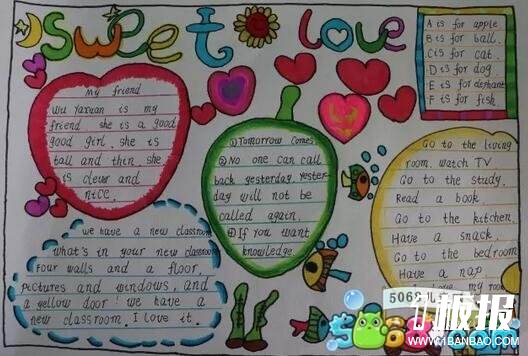 sweet love
A is for apple
B is for ball.
C is for cat.
D is for dog
E is for elephant
F is for fish
My friend
Wu Yaxuan is my
friend she is a good
good girl. she is
tall and thin she
is clever and
nice.
①Tomorrow comes
②No one can call
back yesterday yester-
day will not be
called again.
④If you want
knowledge
Go to the living
room. watch TV
Go to the study.
Read a book.
Go to the kitchen.
Have a snack.
Go to the bedroom
Have a nap.
love my room
we have a new classroom
what's in your new classroom
Four walls and a floor.
pictures and windows, and
a yellow door! we have a
new classroom. I love it.
板报
www.1BANBAO.COM